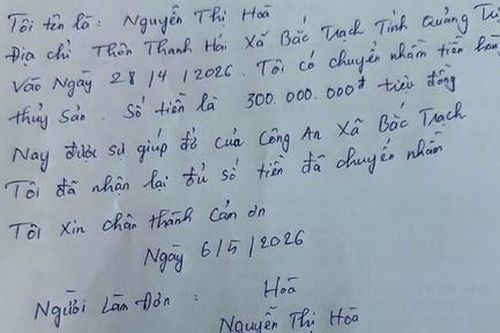 Tôi tên là: Nguyễn Thị Hoà
Địa chỉ Thôn Thanh Hải Xã Bắc Trạch Tỉnh Quảng Trị
Vào Ngày 28/4/2026. Tôi có chuyển nhầm tiền hàng
thủy sản. Số tiền là 300.000.000đ triệu đồng
Nay được sự giúp đỡ của Công An Xã Bắc Trạch
Tôi đã nhận lại đủ số tiền đã chuyển nhầm
Tôi xin chân thành cảm ơn
Ngày 6/5/2026
Người Làm Đơn: Hoà
Nguyễn Thị Hoà